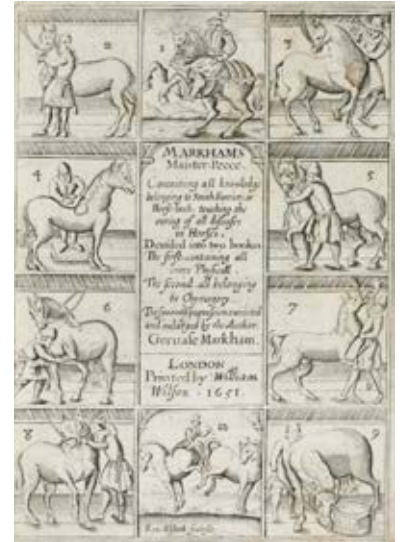 2
1
3
MARKHAMS
Maister-Peece.
Containing all knowledge
belonging to Smith, Farrier, or
Horse-leech, touching the
curing of all diseases
in Horses.
Devided into two bookes
The first containing all
cures Physicall
The second all belonging
to Chyrurgery
and inlarged by the Author.
Gervase Markham.
LONDON
Printed by William
Wilson - 1651.
4
5
6
7
8
10
9